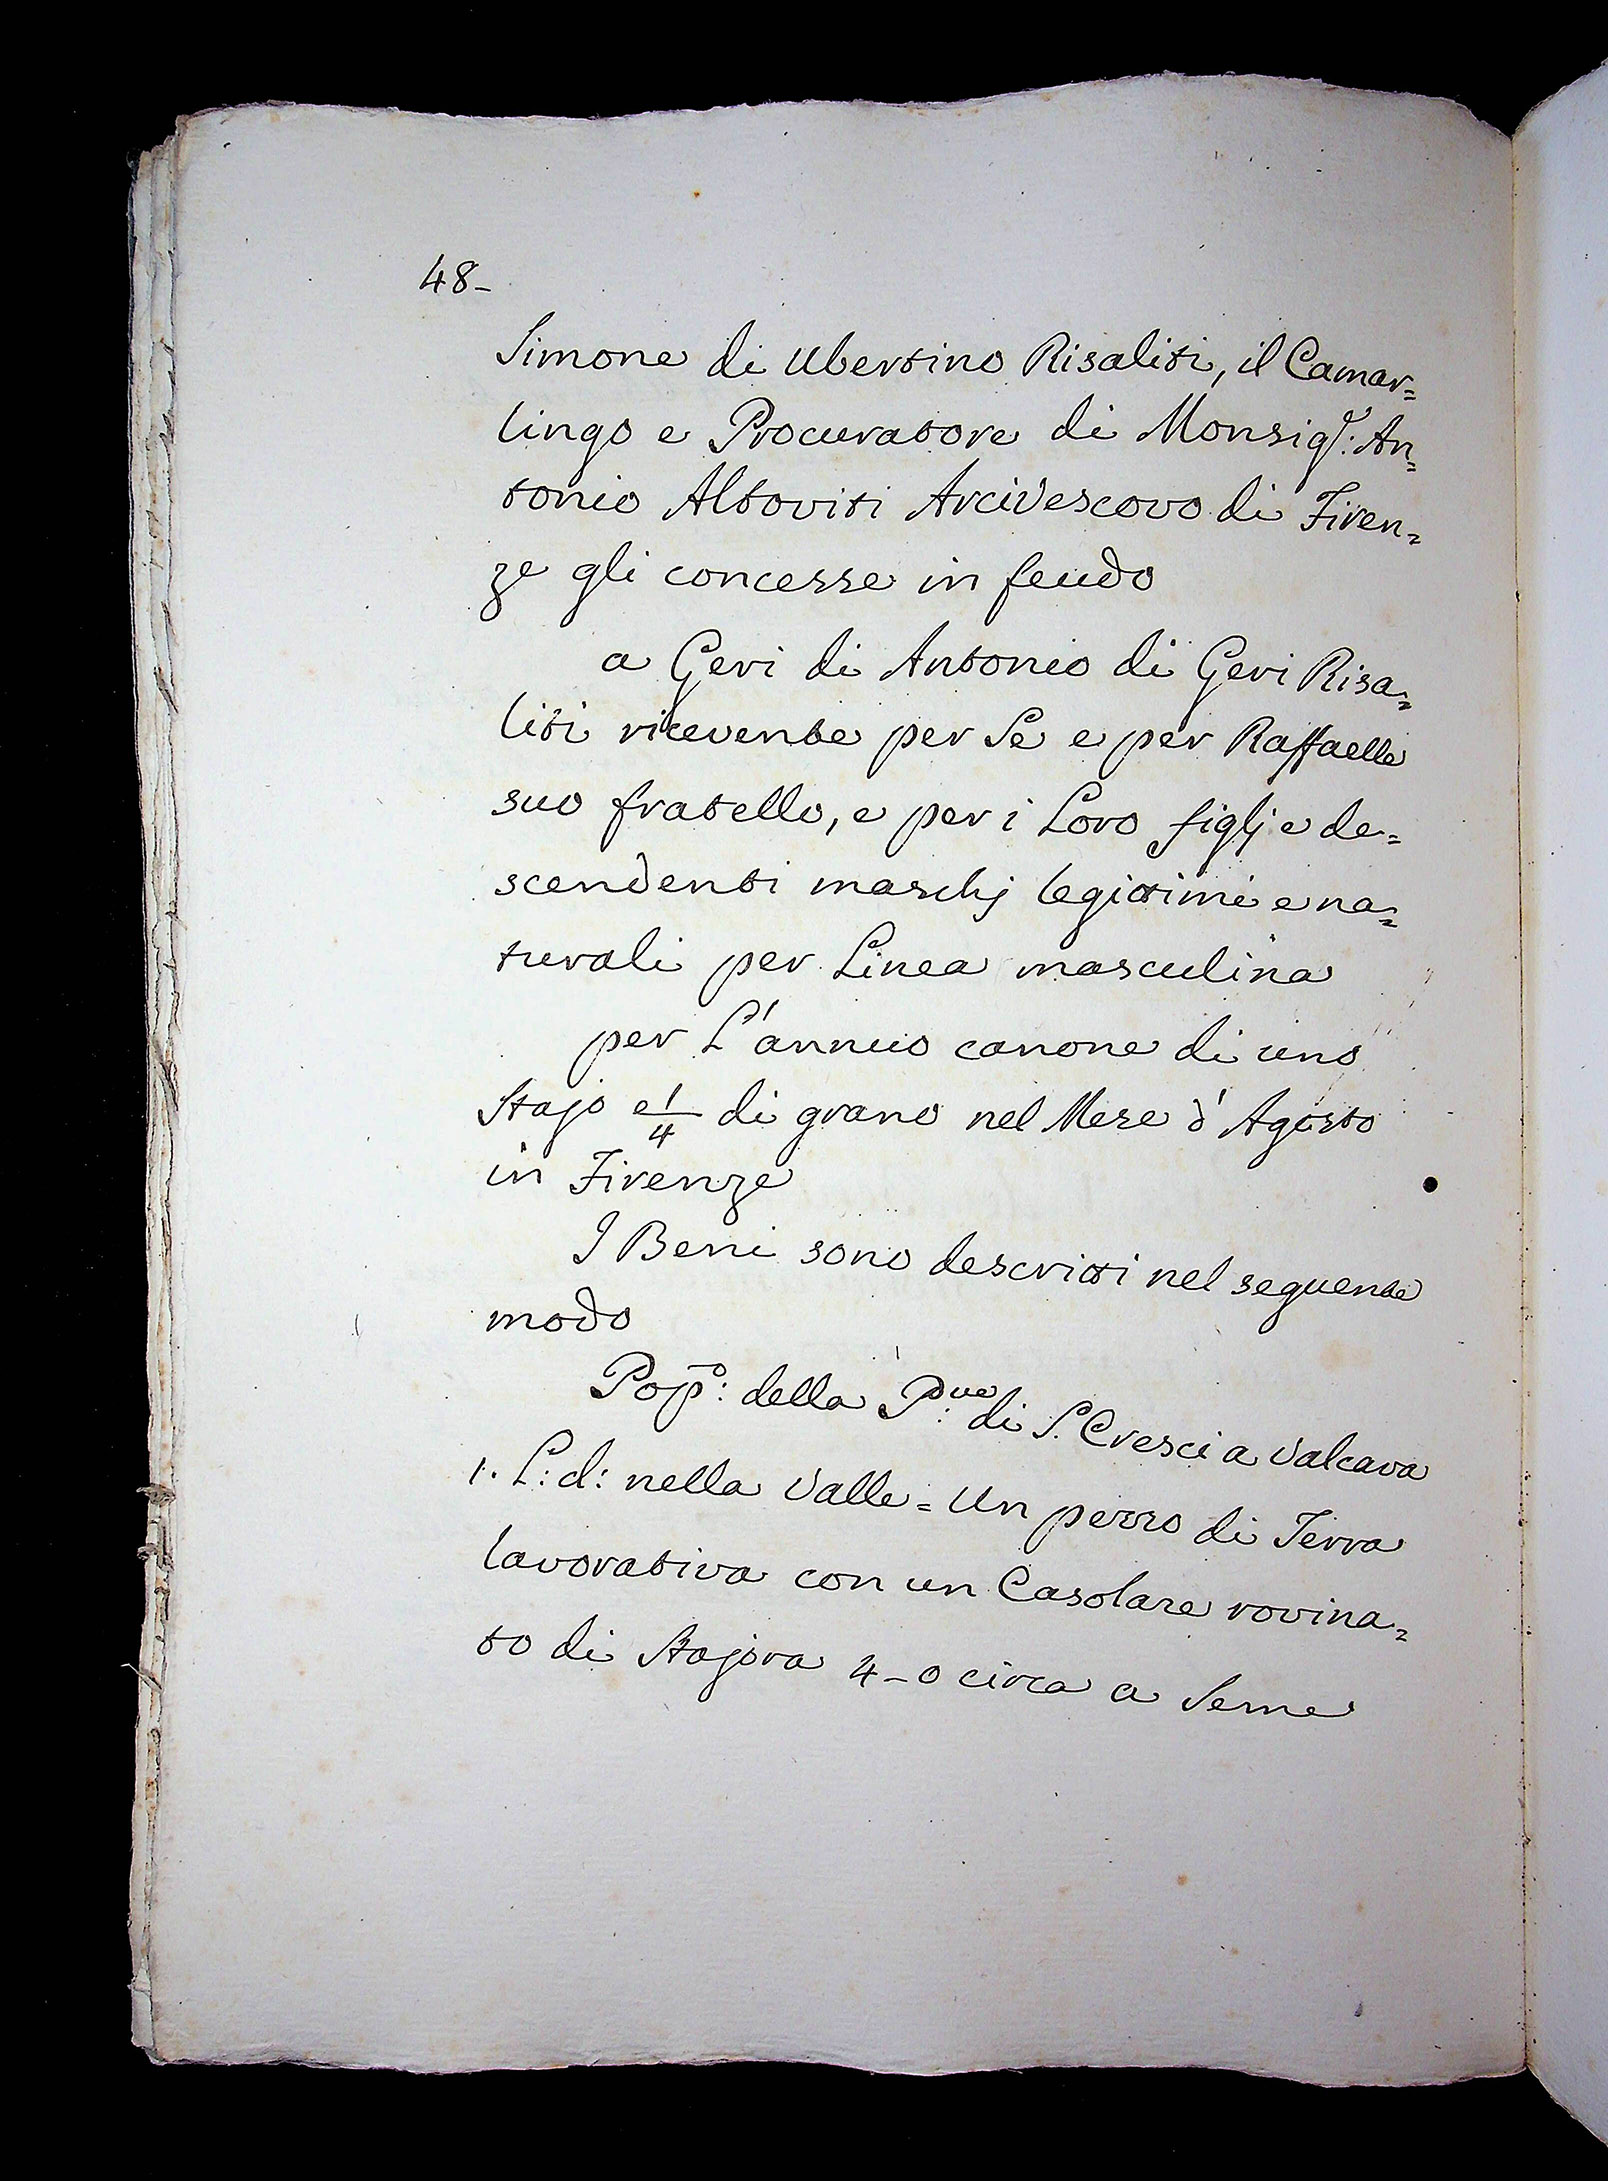 48-
Simone di Ubertino Risaliti, il Camar=
lingo e Procuratore di Monsig.r: An=
tonio Altoviti Arcivescovo di Firen=
ze gli concesse in feudo
a Geri di Antonio di Geri Risa=
liti ricevente per Se e per Raffaelle
suo fratello, e per i Loro figlj e de=
scendenti maschj legittimi e na=
turali per Linea masculina
per L'annuo canone di uno
Stajo e 1/4 di grano nel Mese d'Agosto
in Firenze
I Beni sono descritti nel seguente
modo
Pop.o: della P.ve: di S. Cresci a Valcava
1. L: d: nella Valle = Un pezzo di Terra
lavorativa con un Casolare rovina=
to di Stajora 4-0 circa a Seme